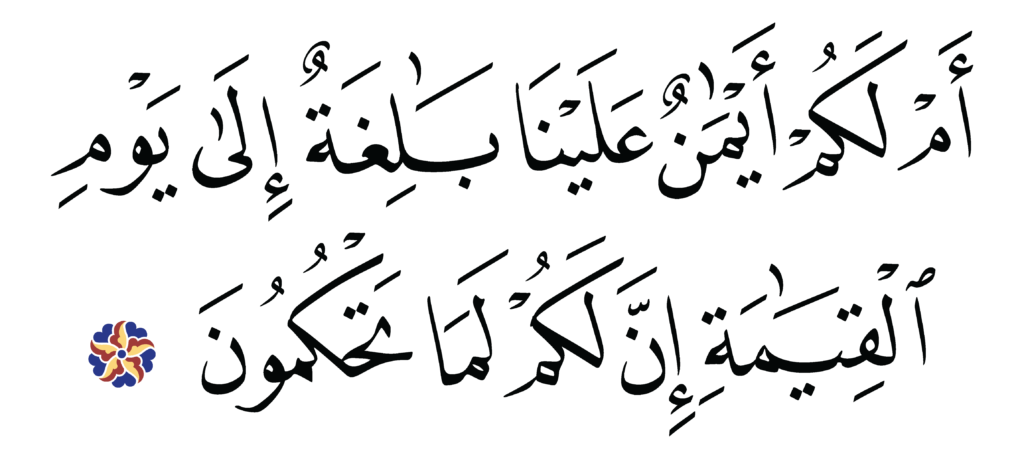 أَمْ لَكُمْ أَيْمَٰنٌ عَلَيْنَا بَٰلِغَةٌ إِلَىٰ يَوْمِ
ٱلْقِيَٰمَةِ إِنَّ لَكُمْ لَمَا تَحْكُمُونَ